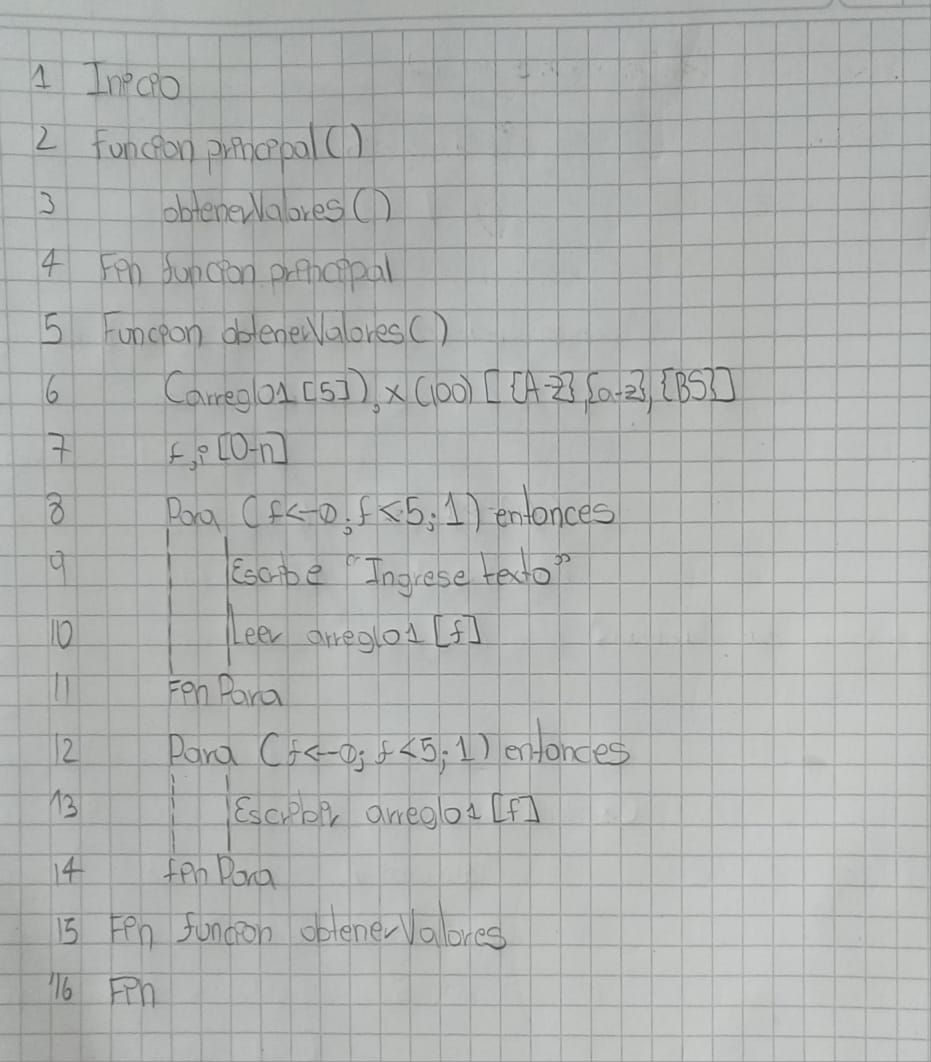 1 Inicio
2 Funcion principal()
3 obtenerValores()
4 Fin funcion principal
5 Funcion obtenerValores()
6 (arreglo1[5]), x(100) [{A-Z},{a-z},{BS}]
7 f,i [0-n]
8 Para (f<-0; f<5; 1) entonces
9 Escribe "Ingrese texto"
10 Leer arreglo1 [f]
11 Fin Para
12 Para (f<-0; f<5; 1) entonces
13 Escribir arreglo1 [f]
14 fin Para
15 Fin funcion obtenerValores
16 Fin